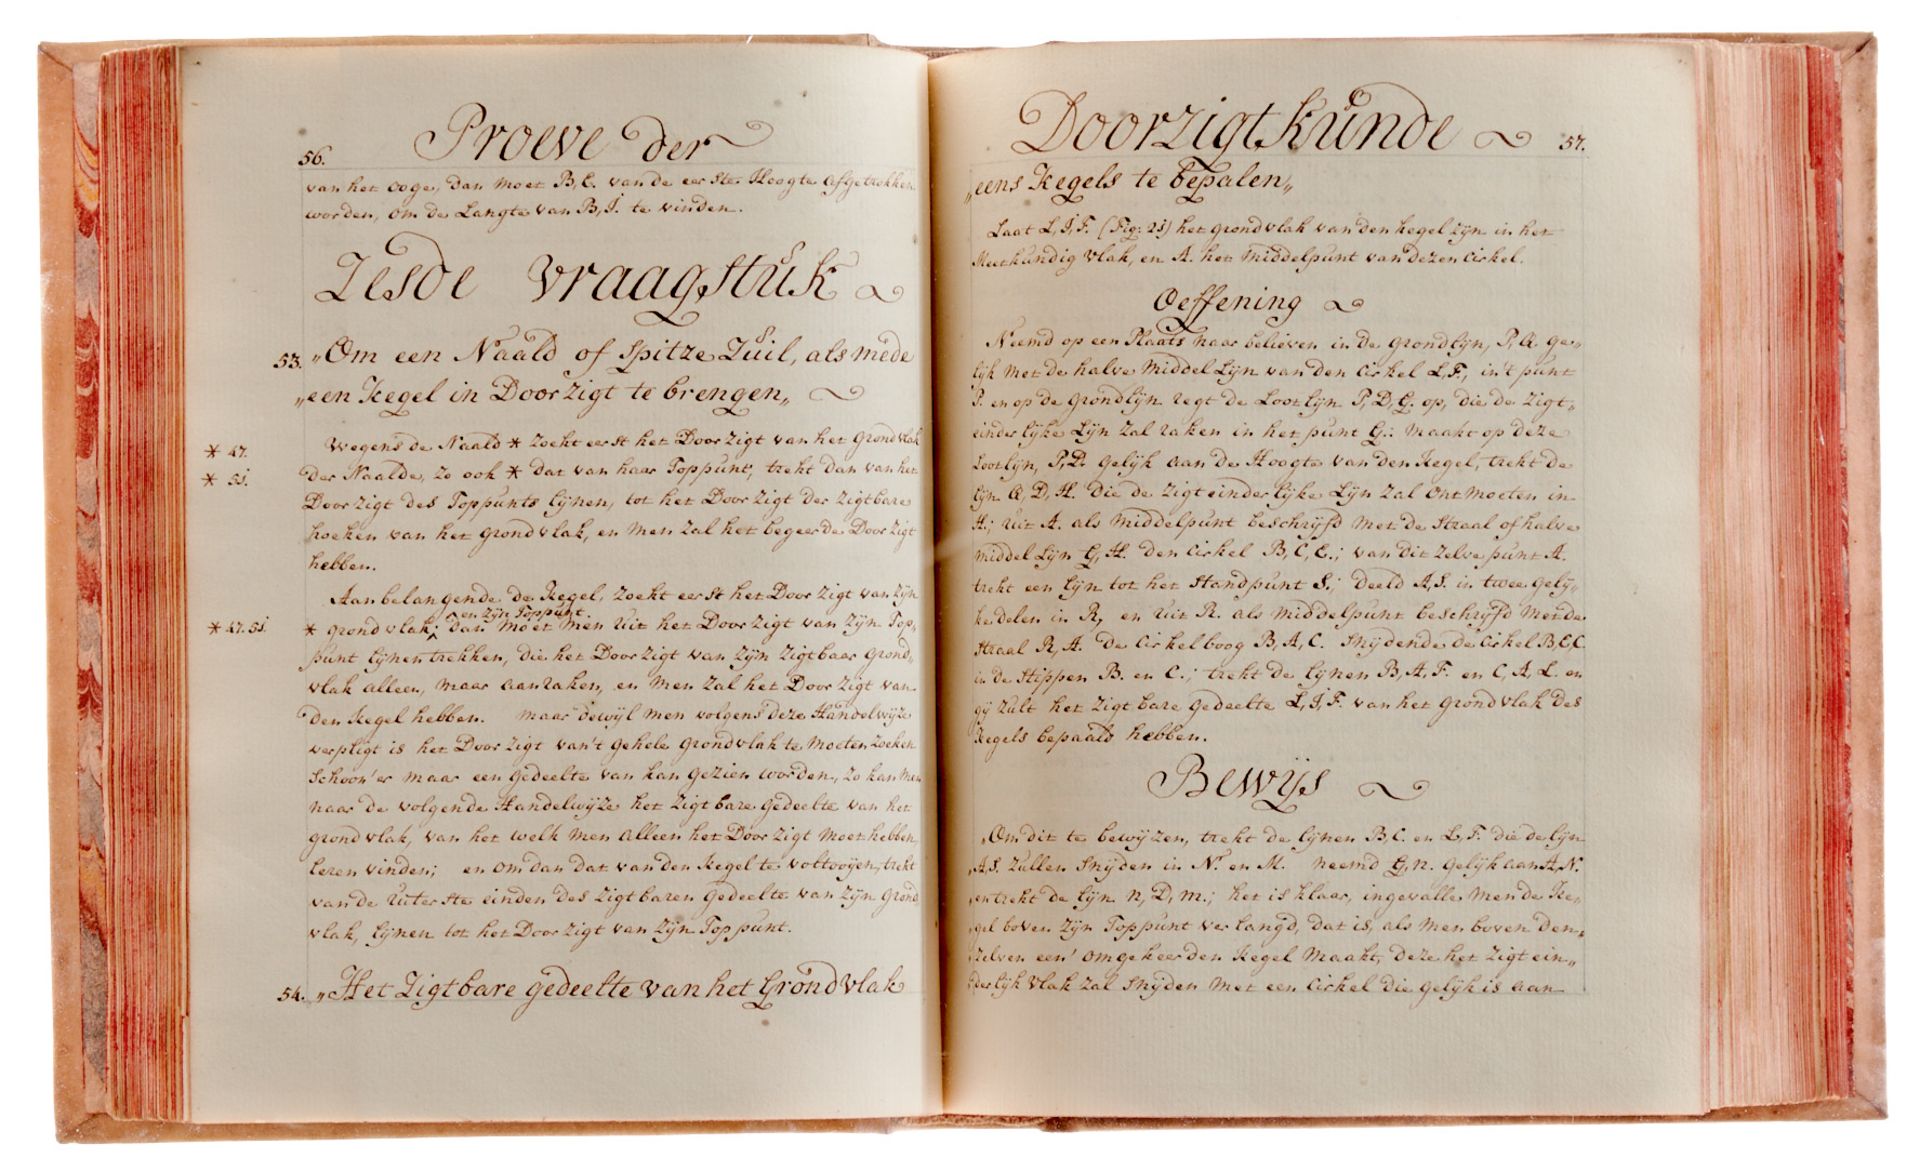 56. Proeve der
van het ooge, dan moet B, E. van de eerste Hoogte afgetrokken
worden, om de Langte van B, I. te vinden.
Zesde Vraagstuk
53. „Om een Naald of spitze Zuil, als mede
„een Kegel in Doorzigt te brengen„
* 47. Wegens de Naald * zoekt eerst het Doorzigt van het grondvlak
* 51. Der Naalde, zo ook * dat van haar Toppunt, trekt dan van het
Doorzigt des Toppunts lijnen, tot het Doorzigt der zigtbare
hoeken van het grondvlak, en men zal het begeerde Doorzigt
hebben.
Aanbelangende de Kegel, zoekt eerst het Doorzigt van zijn
en zijn Toppunt.
* 47. 51. * grondvlak, ^ dan moet men uit het Doorzigt van zijn Top„
punt lijnen trekken, die het Doorzigt van zijn zigtbaar grond„
vlak alleen, maar aanraken, en men zal het Doorzigt van
den Kegel hebben. maar dewijl men volgens deze Handelwijze
verpligt is het Doorzigt van't gehele grondvlak te moeten zoeken
schoon'er maar een gedeelte van kan gezien worden, zo kan men
naar de volgende Handelwijze het zigtbare gedeelte van het
grondvlak, van het welk men alleen het Doorzigt moet hebben,
leren vinden; en om dan dat van den Kegel te voltooijen, trekt
van de uiterste einden des zigtbaren gedeelte van zijn grond
vlak, lijnen tot het Doorzigt van zijn Toppunt.
54. „Het zigtbare gedeelte van het Grondvlak
Doorzigtkunde 57.
„eens Kegels te bepalen„
Laat L, I, F. (Fig: 21) het grondvlak van den kegel zijn in het
Meetkundig vlak, en A. het middelpunt van dezen cirkel.
Oeffening
Neemd op een Plaats naar believen in de grondlijn, P, Q. ge„
lijk met de halve middellijn van den cirkel L, F., in 't punt
P. en op de grondlijn regt de Lootlijn P, D, G. op, die de zigt„
einderlijke Lijn zal raken in het punt G.: maakt op deze
Lootlijn, P, D. gelijk aan de Hoogte van den Kegel, trekt de
lijn Q, D, H. die de zigteinderlijke Lijn zal ontmoeten in
H.; uit A. als middelpunt beschrijfd met de straal of halve
middellijn G, H. den cirkel B, C, E.; van dit zelve punt A.
trekt een lijn tot het standpunt S.; deeld A, S. in twee gelij„
ke delen in R, en uit R. als middelpunt beschrijfd met de
straal R, A. de cirkelboog B, A, C. snijdende de cirkel B, E, C
in de stippen B. en C.; trekt de lijnen B, A, F. en C, A, L. en
gij zult het zigtbare gedeelte L, I, F. van het grondvlak des
Kegels bepaald hebben.
Bewijs
Om dit te bewijzen, trekt de lijnen B, C. en L, F. die de lijn
A, S. zullen snijden in N. en M. neemd G, n. gelijk aan A, N.
en trekt de lijn n, D, m.; het is klaar, ingevalle men de Ke„
gel boven zijn Toppunt verlangd, dat is, als men boven den„
zelven een' omgekeerden Kegel maakt, deze het zigtein„
derlijk vlak zal snijden met een cirkel die gelijk is aan